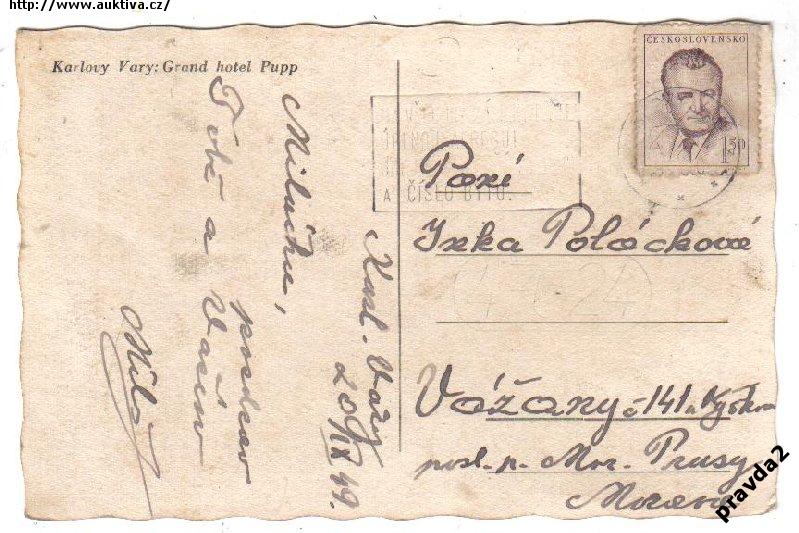 http://www.auktiva.cz/
Karlovy Vary: Grand hotel Pupp
ČESKOSLOVENSKO
1.50
A ČÍSLO BYTU.
Karl. Vary
20/IX 49.
Miluško,
pozdrav
Tobě a Vašim
Míla
Paní
Poláčková
Vážany č 141 u Vyškova
posl. p. Mor. Prusy
Morava
pravda2